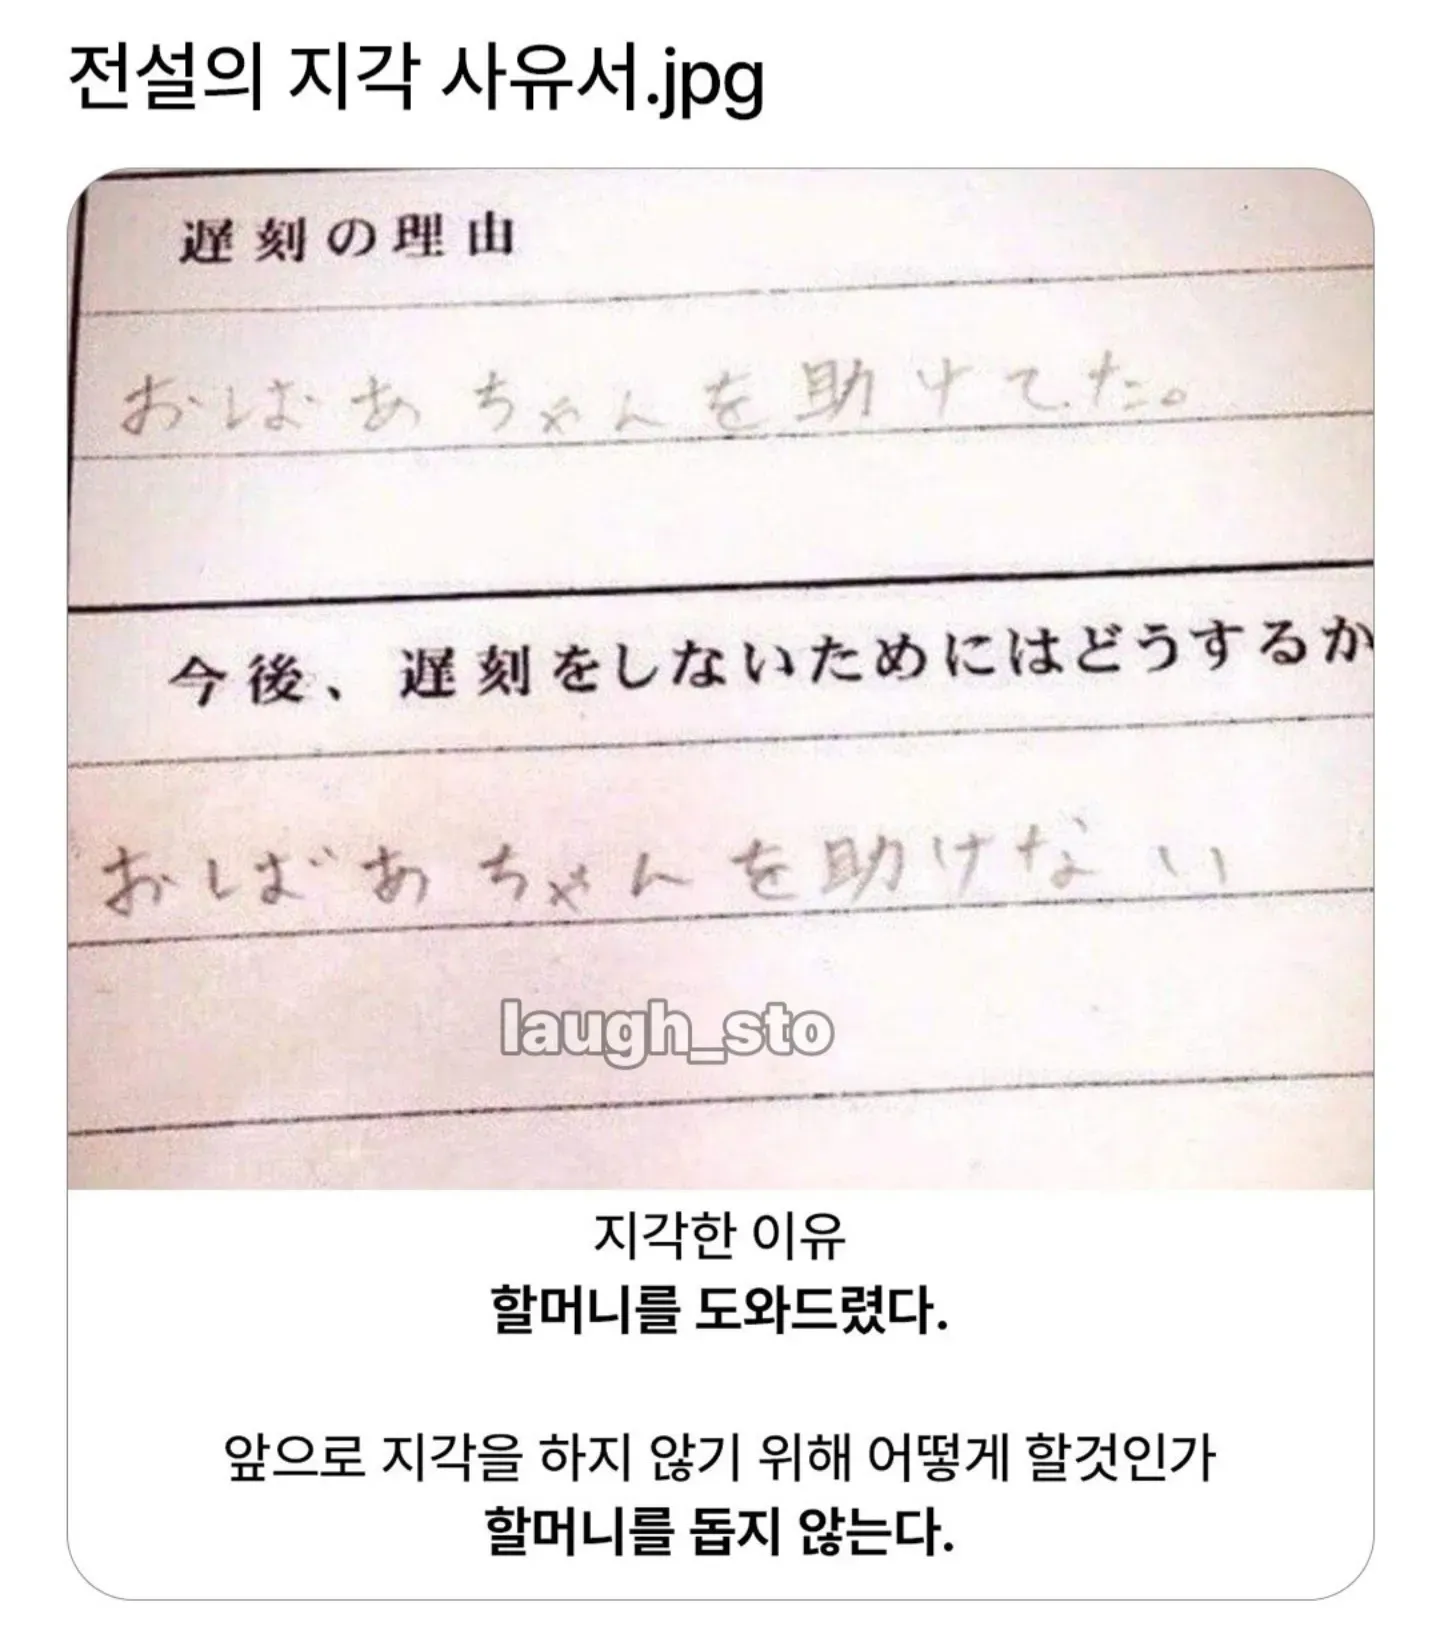 전설의 지각 사유서.jpg
遅刻の理由
おばあちゃんを助けてた。
今後、遅刻をしないためにはどうするか
おばあちゃんを助けない
laugh_sto
지각한 이유
할머니를 도와드렸다.
앞으로 지각을 하지 않기 위해 어떻게 할것인가
할머니를 돕지 않는다.